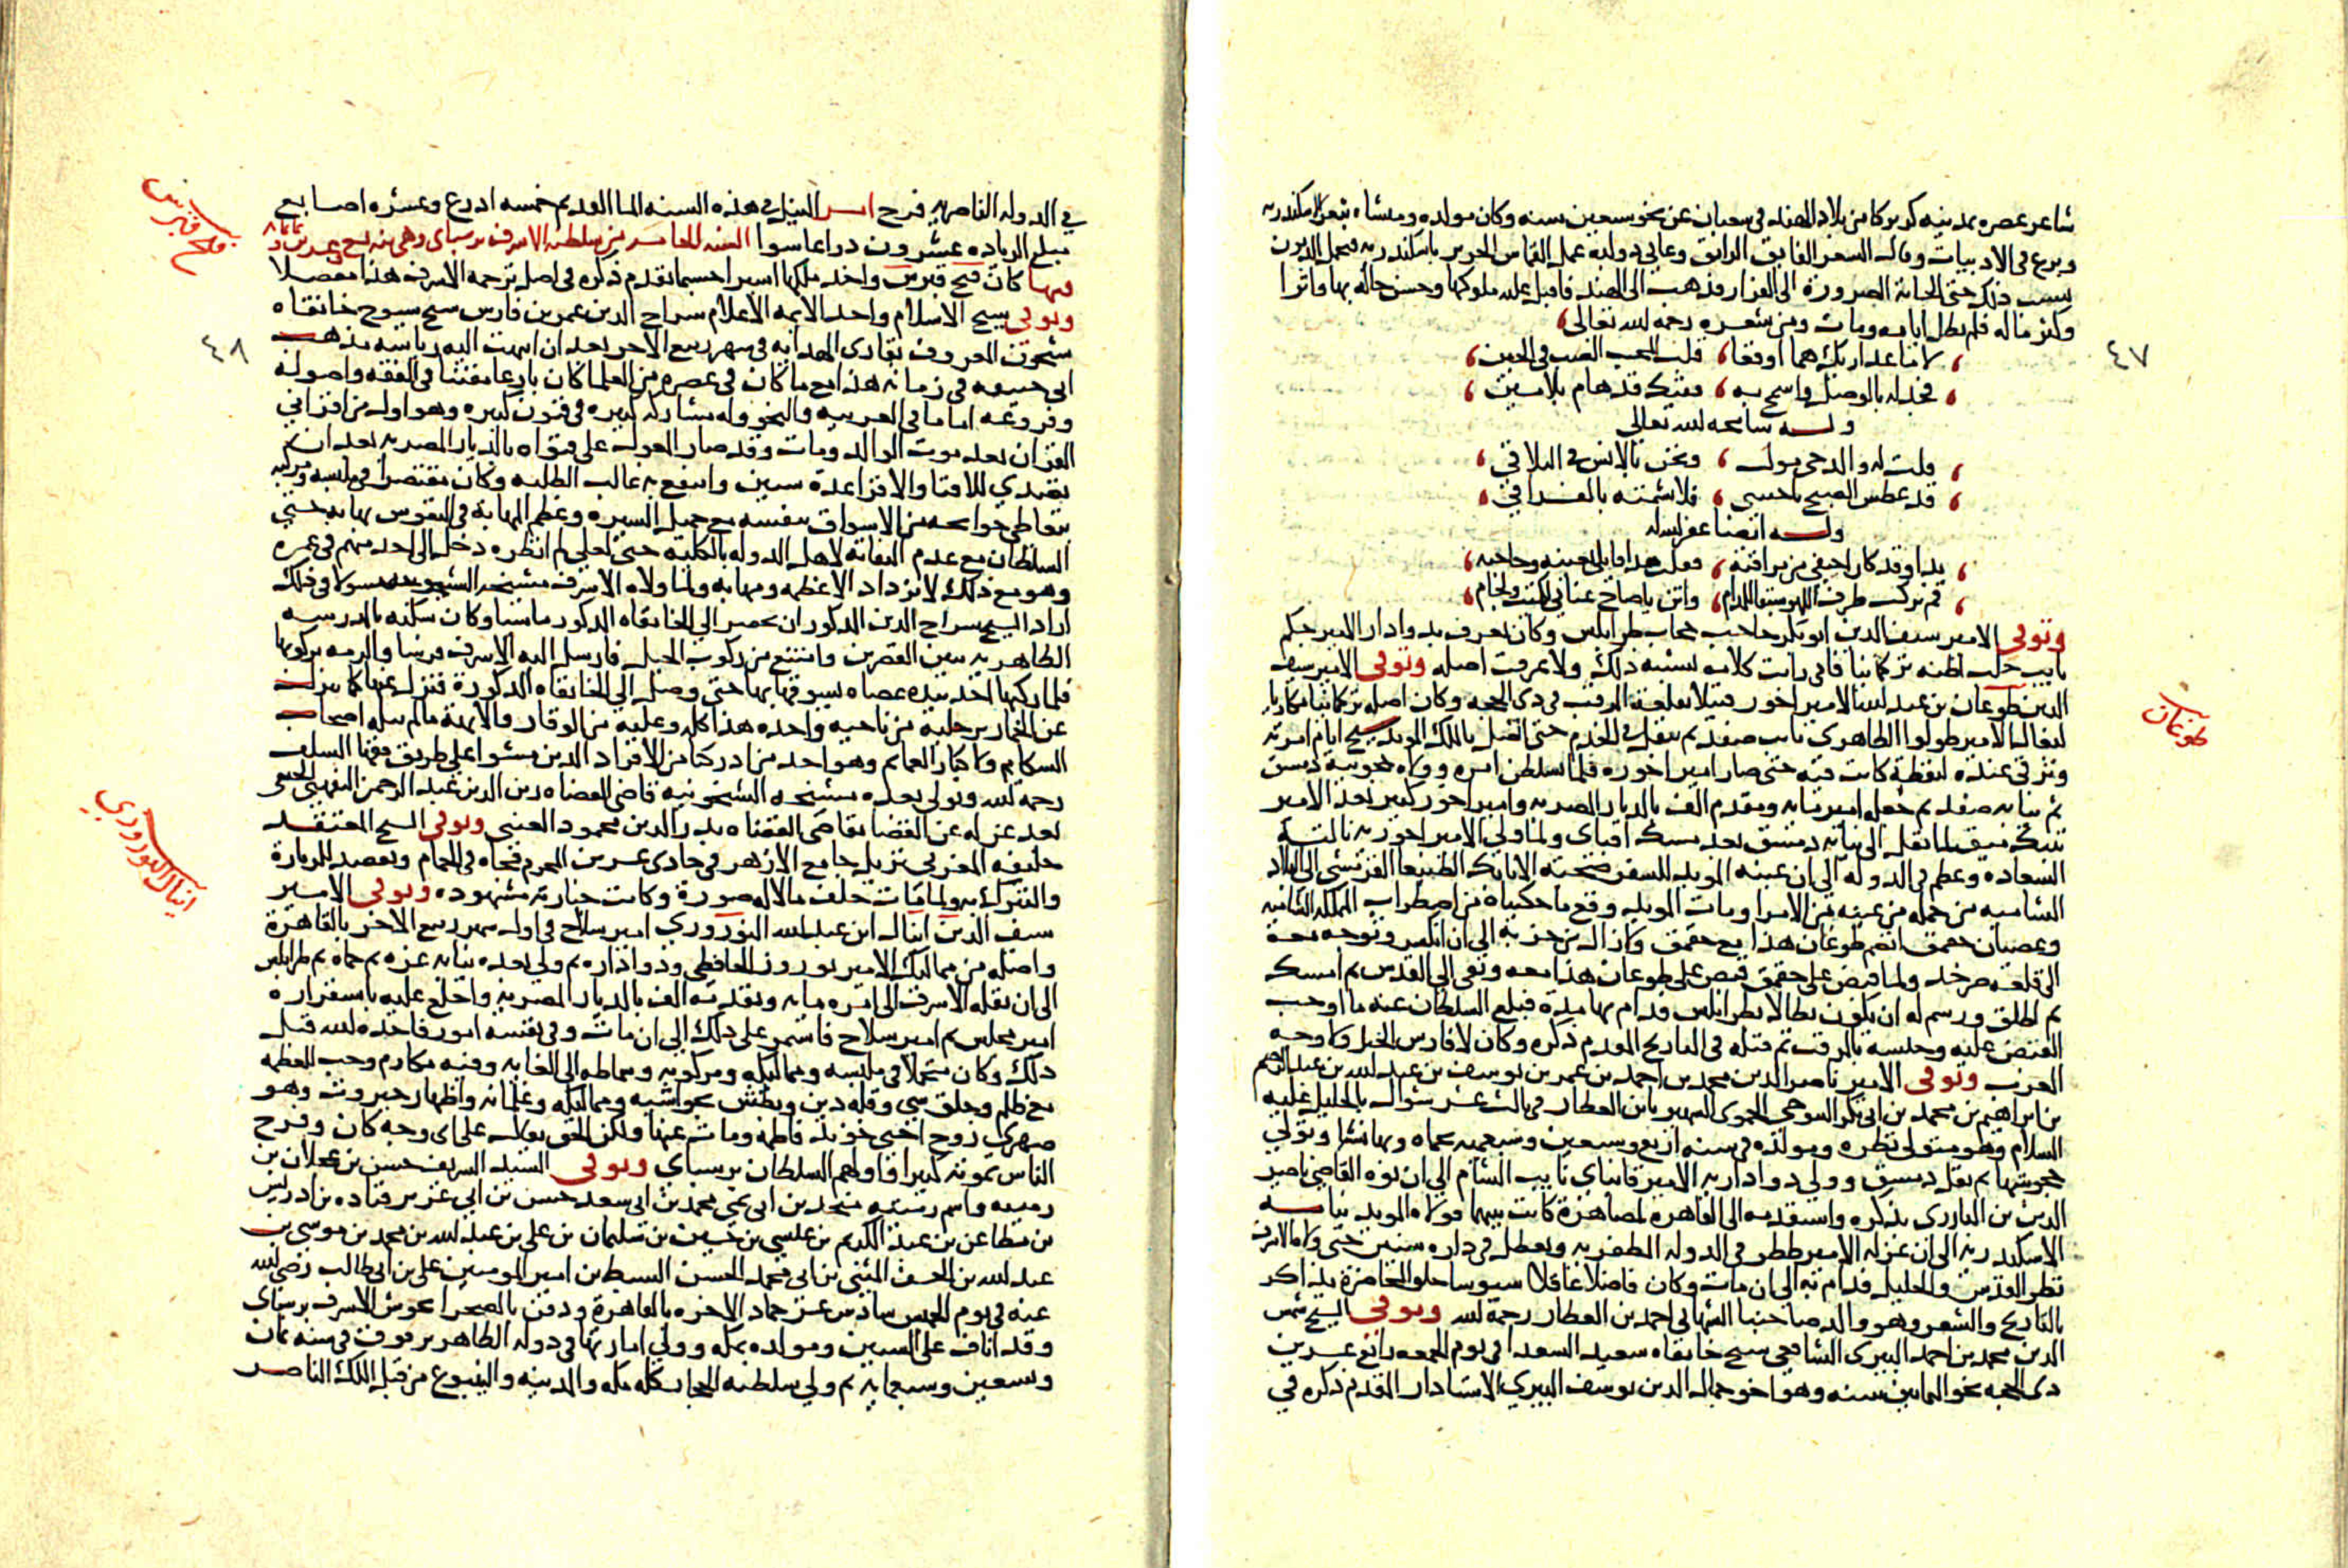 شاعر عصره بمدينه كربركا من بلاد الهند في شعبان عن نحو سبعين سنه وكان مولده ومنشاه بثغر الاسكندريه
وبرع في الادبيات وقال الشعر الفايق الرايق وعانى دولبة عمل القماش الحرير باسكندريه فتحمل الديون
بسبب ذلك حتى الجاته الضرورة الى الفرار فذهب الى الهند فاقبل عليه ملوكها وحسن حاله بها واثرا
وكثر ماله فلم تطل ايامه ومات ومن شعره رحمه الله تعالى
٤٧
لامنا عداريك هما اوقعا قلب المحب الصب في الحين
فجد له بالوصل واسمح به ففيك قد هام بلامين
وله سامحه الله تعالى
قلت له والدجى مول ونحن بالانس في التلاقي
قد عطس الصبح يا حبيبي فلا تشمته بالفراق
وله ايضا عفر الله له
بدا وقد كان اختفى من مراقبه فقلت هدا قاتلي بعينه وحاجبه
قم نركب طرف اللهو سبقا للمدام واثن يا صاح عناني لكميت ولجام
وتوفي الامير سيف الدين ابو بكر حاجب حجاب طرابلس وكان يعرف بدوادار الامير جكم
نايب حلب اظنه تركمانيا فاني رايت كلامه يشبه ذلك ولا عرفت اصله وتوفي الامير سيف
الدين طوغان بن عبد الله الامير اخور قتيلا بقلعة المرقب في ذي الحجه وكان اصله تركمانيا مكاريا
لبغال الامير طولوا الظاهري نايب صفد ثم تنقل في الخدم حتى اتصل بالملك المويد شيخ ايام امرته
وترقى عنده ليقظة كانت فيه حتى صار امير اخوره فلما تسلطن امره وولاه حجوبية دمشق
ثم نيابه صفد ثم جعل امير مايه ومقدم الف بالديار المصريه وامير اخور كبير بعد الامير
تنبك ميق لما نقل الى نيابه دمشق بعد مسك اقباي ولما ولي الامير اخوريه نالته
السعاده وعظم في الدوله الى ان عينه المويد للسفر صحبته الاتابك الطنبغا القرمشي الى البلاد
الشاميه من جمله من عينه من الامرا ومات المويد ووقع ما حكيناه من اضطراب المملكه الشاميه
وعصيان جقمق انضم طوغان هذا مع جقمق وكان الدين حزبه الى ان انكسر وتوجه معه
الى قلعه صرخد ولما قبض على جقمق قبض على طوغان هذا معه ونفي الى القدس ثم امسك
ثم اطلق ورسم له ان يكون بطالا بطرابلس فدام بها مدة فبلغ السلطان عنه ما اوجب
القبض عليه وحبسه بالمرقب ثم قتله في التاريخ المقدم ذكره وكان لا فارس الخيل ولا وجه
العرب وتوفي الامير ناصر الدين محمد بن احمد بن عمر بن يوسف بن عبد الله بن عبد الرحيم
بن ابراهيم بن محمد بن ابي بكر التنوخي الحموي الشهير بابن العطار في ثالث عشر شوال بالخليل عليه
السلام وهو متولي نظره ومولده في سنه اربع وسبعين وسبعميه بحماه وبها نشا وتولي
حجوبتها ثم نقل دمشق وولي دوادارية الامير قانباي نايب الشام الى ان نوه القاضي ناصر
الدين بن البارزي بذكره واستقدمه الى القاهره لمصاهرة كانت بينهما فولاه المويد نيابه
الاسكندريه الى ان عزله الامير ططر في الدوله المظفريه وتعطل في داره سنين حتى ولاه الاشرف
نظر القدس والخليل فدام به الى ان مات وكان فاضلا عاقلا سيوسا حلو المحاضرة يذاكر
بالتاريخ والشعر وهو والد صاحبنا الشهابي احمد بن العطار رحمه الله وتوفي الشيخ شمس
الدين محمد بن احمد البيري الشافعي شيخ خانقاه سعيد السعدا في يوم الجمعه رابع عشرين
دي الحجه نحو الثمانين سنه وهو اخو جمال الدين يوسف البيري الاستادار المقدم ذكره في
طوغان
في الدوله الناصريه فرج امر النيل في هذه السنه الما القديم خمسه ادرع وعشره اصابع
مبلغ الزياده عشرون دراعا سوا السنه الخامسه من سلطنه الاشرف برسباي وهي سنه تسع وعشرين وثمانمايه
فيها كان فتح قبرس واخد ملكها اسيرا حسبما تقدم ذكره في اصل ترجمه الاشرف هذا مفصلا
وتوفي شيخ الاسلام واحد الايمه الاعلام سراج الدين عمر بن فارس شيخ شيوخ خانقاه
شيخون المعروف بقاري الهدايه في شهر ربيع الاخر بعد ان انتهت اليه رياسه مذهب
ابي حنيفه في زمانه هذا مع ما كان في عصره من العلما كان بارعا مفننا في الفقه واصوله
وفروعه اماما في العربيه والنحو وله مشاركه كثيره في فنون كثيره وهو اول من اقراني
القران بعد موت الوالد ومات وقد صار المعول على فتواه بالديار المصريه بعد ان
تصدي للافتا والاقرا عدة سنين وانتفع به غالب الطلبه وكان مقتصرا في ملبسه ومركبه
يتعاطى حوايجه من الاسواق بنفسه مع جميل السيره وعظم المهابة في النفوس يهابه حتى
السلطان مع عدم التفاته لاهل الدوله بالكليه حتى لعلي لم انظره دخل الى احد منهم في عمره
وهو مع ذلك لا يزداد الا عظمه ومهابه ولما ولاه الاشرف مشيخه الشيخونيه مسولا في ذلك
اراد الشيخ سراج الدين المدكور ان يحضر الى الخانقاه المدكور ماشيا وكان سكنه بالمدرسه
الظاهريه بين القصرين وامتنع من ركوب الخيل فارسل اليه الاشرف فرسا والزمه بركوبها
فلما ركبها اخد بيده عصاه يسوقها بها حتى وصل الى الخانقاه المدكورة فنزل عنها كما ينزل
عن الحمار برجليه من ناحيه واحده هذا كله وعليه من الوقار والابهة ما لم ينله اصحاب
الشكايم ولا كبار العمايم وهو احد من ادركنا من الافراد الدين مشوا على طريق فقها السلف
رحمه الله وتولى بعده مشيخه الشيخونيه قاضي القضاه زين الدين عبد الرحمن التفهني الحنفي
بعد عزله عن القضا بقاضي القضاه بدر الدين محمود العيني وتوفي الشيخ المعتقد
خليفه المغربي نزيل جامع الازهر في حادي عشرين المحرم فجاه في الحمام وتقصد الزيارة
والتبرك به ولما مات خلف مالا له صورة وكانت جنازته مشهوده وتوفي الامير
سيف الدين اينال ابن عبد الله النوروزي امير سلاح في اول شهر ربيع الاخر بالقاهرة
واصله من مماليك الامير نوروز الحافظي ودواداره ثم ولي بعده نيابه غزه ثم حماة ثم طرابلس
الى ان نقله الاشرف الى امره مايه وتقدمه الف بالديار المصريه واخلع عليه باستقراره
امير مجلس ثم امير سلاح فاستمر على ذلك الى ان مات وفي نفسه امور فاخده الله قبل
ذلك وكان متجملا في ملبسه ومماليكه ومركوبه وسماطه الى الغايه وفيه مكارم وحب للعظمه
مع ظلم وخلق سي وقله دين وبطش بحواشيه ومماليكه وغلمانه واظهار جبروت وهو
صهري زوج اختي خوند فاطمه ومات عنها ولكن الحق يقال على اي وجه كان وفرح
الناس بموته كثيرا فاولهم السلطان برسباي وتوفي السيد الشريف حسن بن عجلان بن
رميثه واسم رميثه منجد بن ابي نمي محمد بن ابي سعد حسن بن ابي عزيز قتاده بن ادريس
بن مطاعن بن عبد الكريم بن عيسى بن حسين بن سليمان بن علي بن عبد الله بن محمد بن موسى بن
عبد الله بن الحسن المثنى بن ابي محمد الحسن السبط بن امير المومنين علي بن ابي طالب رضي الله
عنه في يوم الخميس سادس عشر جماد الاخره بالقاهرة ودفن بالصحرا بحوش الاشرف برسباي
وقد اناف على الستين ومولده بمكه وولي امارتها في دوله الظاهر برقوق في سنه ثمان
وتسعين وسبعمايه ثم ولي سلطنه الحجاز كله مكه والمدينه والينبوع من قبل الملك الناصر
فتح قبرس
٤٨
اينال النوروزي